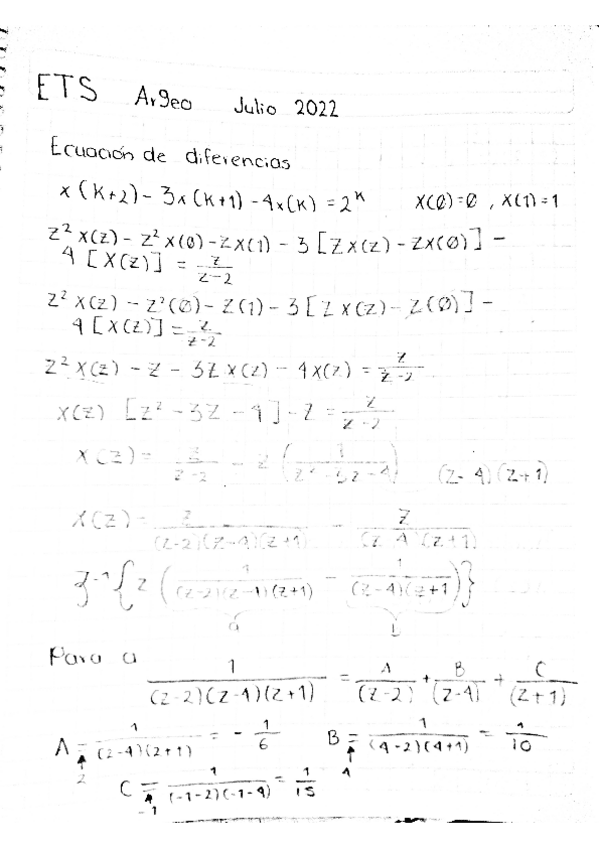 ETS Argeo Julio 2022
Ecuación de diferencias
x(k+2) - 3x(k+1) - 4x(k) = 2^k x(0)=0 , x(1)=1
z² x(z) - z² x(0) - z x(1) - 3 [z x(z) - z x(0)] -
4 [x(z)] = z/(z-2)
z² x(z) - z²(0) - z(1) - 3 [z x(z) - z(0)] -
4 [x(z)] = z/(z-2)
z² x(z) - z - 3z x(z) - 4x(z) = z/(z-2)
x(z) [z² - 3z - 4] - z = z/(z-2)
x(z) = z/(z-2) - z (1/(z²-3z-4)) (z-4)(z+1)
x(z) = z/((z-2)(z-4)(z+1)) - z/((z-4)(z+1))
z⁻¹{z (1/((z-2)(z-4)(z+1)) - 1/((z-4)(z+1)))}
a b
Para a 1/((z-2)(z-4)(z+1)) = A/(z-2) + B/(z-4) + C/(z+1)
A = 1/((2-4)(2+1)) = - 1/6 B = 1/((4-2)(4+1)) = 1/10
2 4
C = 1/((-1-2)(-1-4)) = 1/15
-1